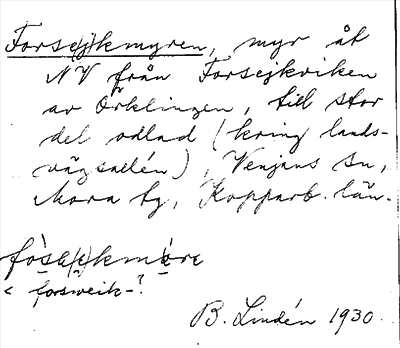 Forsejkmyren, myr åt
NV från Forsejkviken
av Örklingen, till stor
del odlad (kring lands-
vägsallén), Venjans sn,
Mora tg, Kopparb. län.
< forsveik-?
B. Lindén 1930.